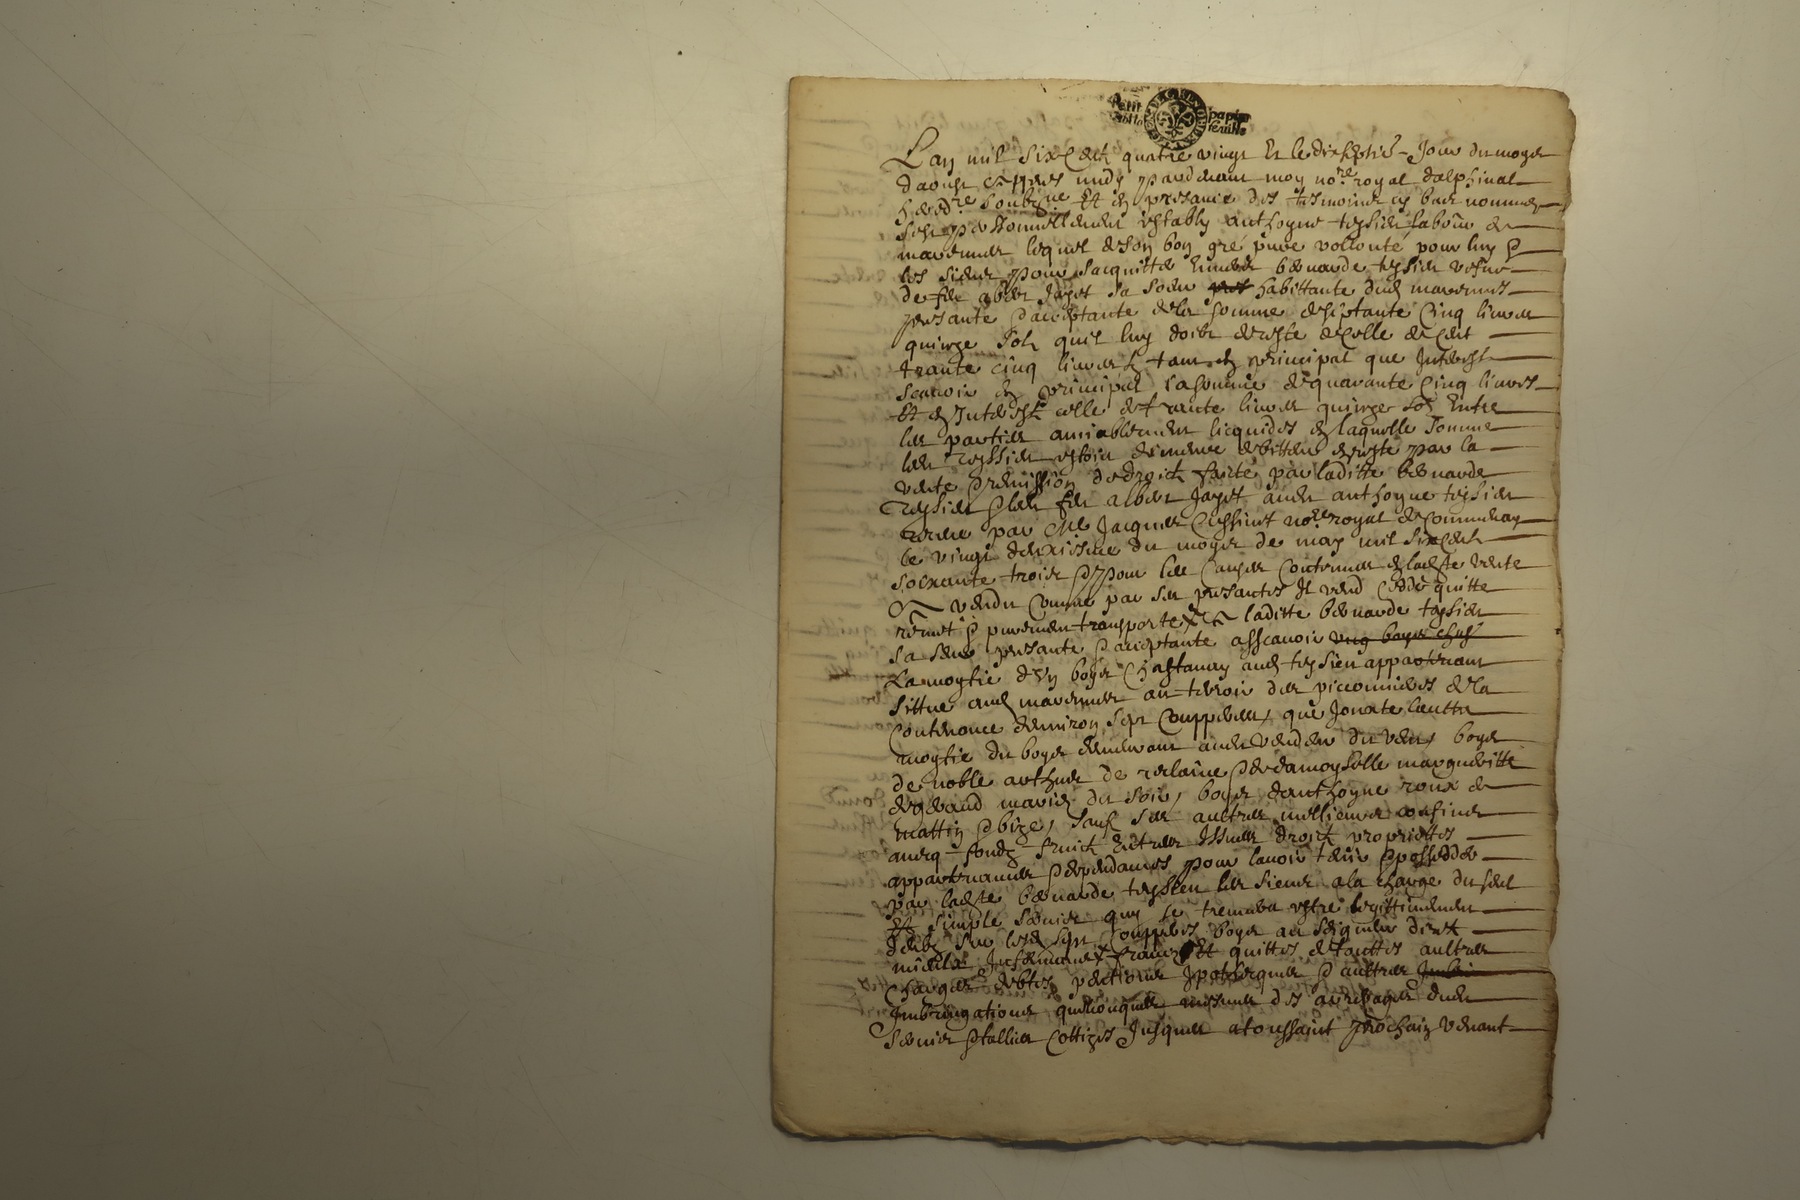 Petit papier
feuille
Lan mil six cent quatre vingt Et le dixseptie Jour du moys
daoust apres midy pardevant moy no.re royal dalphinal
soubzne Et en presance des tesmoins cy bas nommes
personnellement estably anthoyne teysier labour de
lequel de son bon gré pure vollonté pour luy &
les siens pour sacquitter envers bernarde teysier vefve
de feu Jayet sa soeur habittante dud
presante & acceptante de la somme de septante cinq livres
quinze solz quil luy doibt de reste de celle de cent
trante cinq livres tant en principal que Interest
scavoir en principal la somme de quarante cinq livres
Et en Interestz celle de trante livres quinze solz Entre
les parties amiablement licquides en laquelle somme
led teyssier estoit demeure debitteur de reste par la
vente & remission de droictz faicte par laditte bernarde
teysier & led feu Jayet aud anthoyne teysier
receue par Me Jacques no.re royal de
le vingt deuxiesme du moys de may mil six cent
soixante trois & pour les causes contenues en ladte vente
a vendu comme par ses presantes Il vend cedde quitte
remet & purement transporte a laditte bernarde teysier
sa seur presante & acceptante asscavoir
La moytie dun boys chastanay aud teysier appartenant
sittue aud au terroir des de la
contenance denviron sept couppees, que Jouxte lautre
moytie du boys demeurant aud vendeur du vent, boys
de noble arthus de & de damoyselle margueritte
maries du soir, boys danthoyne roux de
mattin & bize, sauf ses aultres meillieurs confins
avecq fondz fruictz Entrees Issues droictz proprietes
appartenances & dependances pour lavoir tenir & possedder
par ladte bernarde teysier les siens a la charge du seul
Et simple servis quy se treuvera estre legittimement
deub sur lesd sept couppees boys au seigneur direct
franc Et quittes de touttes aultres
charges debtes pentions Ipothecques & aultres
Imbrigations quelconques mesmes des arreyrages dud
servis & tallies cottizes Jusques a toussaint prochain venant